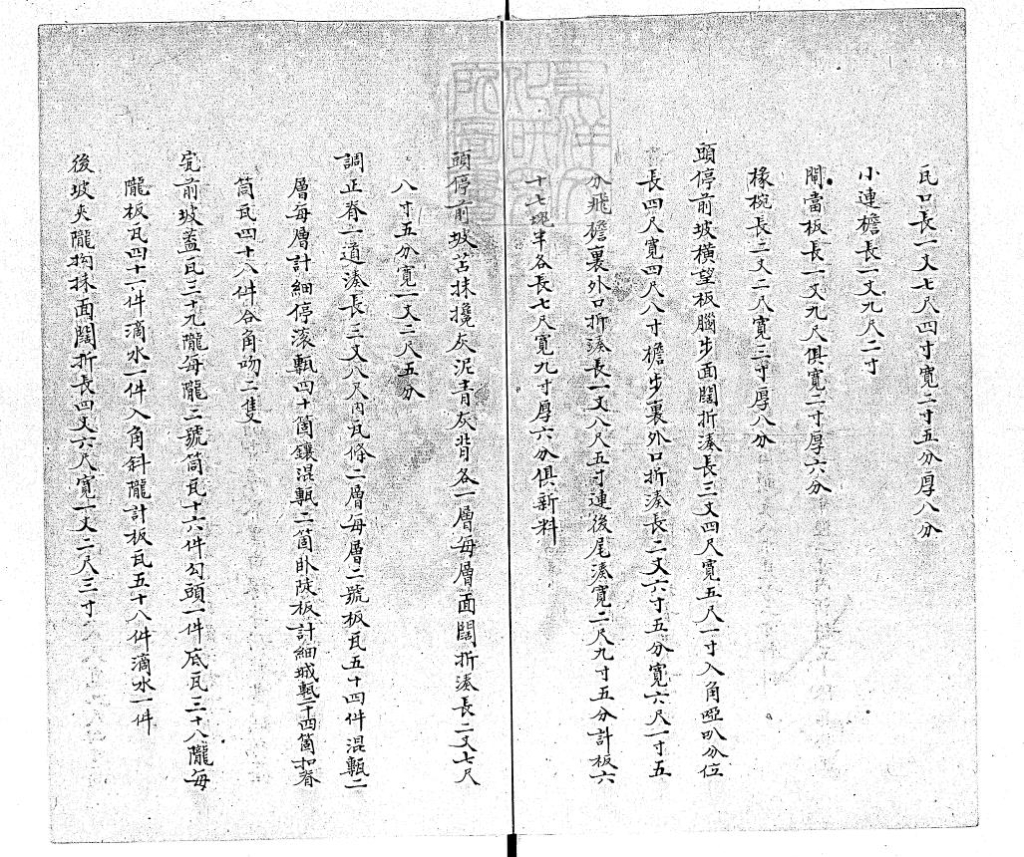 瓦口長一丈七尺四寸寬二寸五分厚八分
小連檐長一丈九尺二寸
閘當板長一丈九尺俱寬二寸厚六分
椽椀長二丈二尺寬三寸厚八分
頭停前坡橫望板腦步面闊折湊長三丈四尺寬五尺一寸入角啞叭分位
長四尺寬四尺八寸檐步裏外口折湊長二丈六寸五分寬六尺一寸五
分飛檐裏外口折湊長一丈八尺五寸連後尾湊寬二尺九寸五分計板六
十七塊半各長七尺寬九寸厚六分俱新料
頭停前坡苫抹攙灰泥青灰背各一層每層面闊折湊長二丈七尺
八寸五分寬一丈二尺五分
調正脊一道湊長三丈八尺內瓦條二層每層二號板瓦五十四件混甎二
層每層計細停滚甎四十箇鑲混甎二箇卧陡板計細城甎二十四箇扣脊
筒瓦四十八件合角吻二隻
寬前坡蓋瓦三十九隴每隴二號筒瓦十六件勾頭一件底瓦三十八隴每
隴板瓦四十一件滴水一件入角斜隴計板瓦五十八件滴水一件
後坡夾隴捉抹面闊折長四丈六尺寬一丈二尺三寸